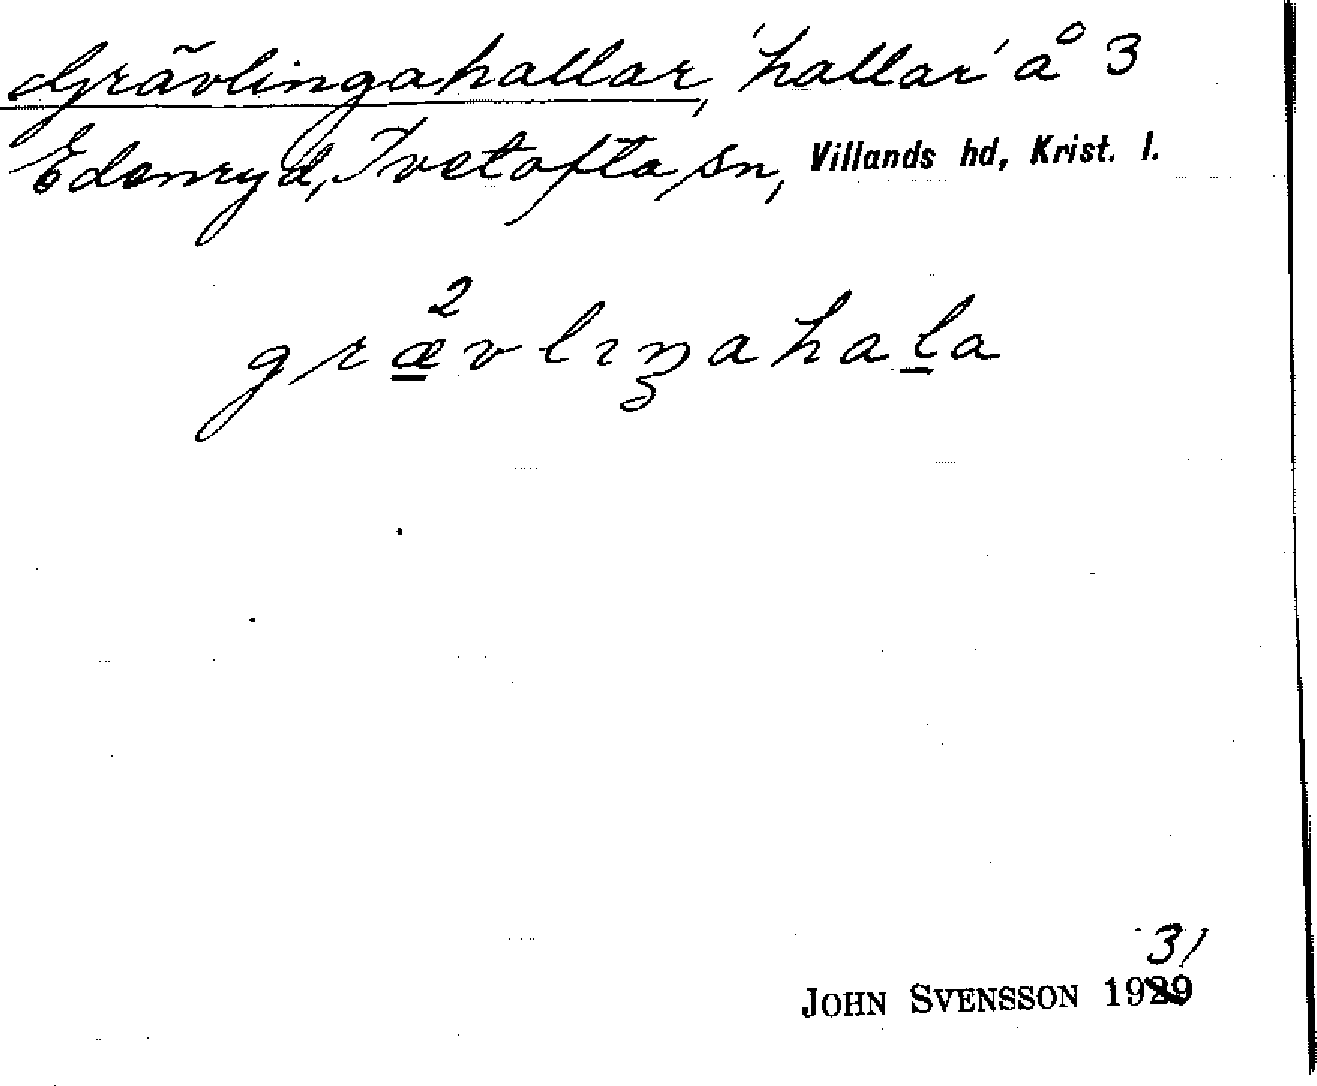 Grävlingahallar, 'hallar' å 3
Edenryd, Ivetofta sn, Villands hd, Krist. l.
2
grævlıŋahala
31
JOHN SVENSSON 1929